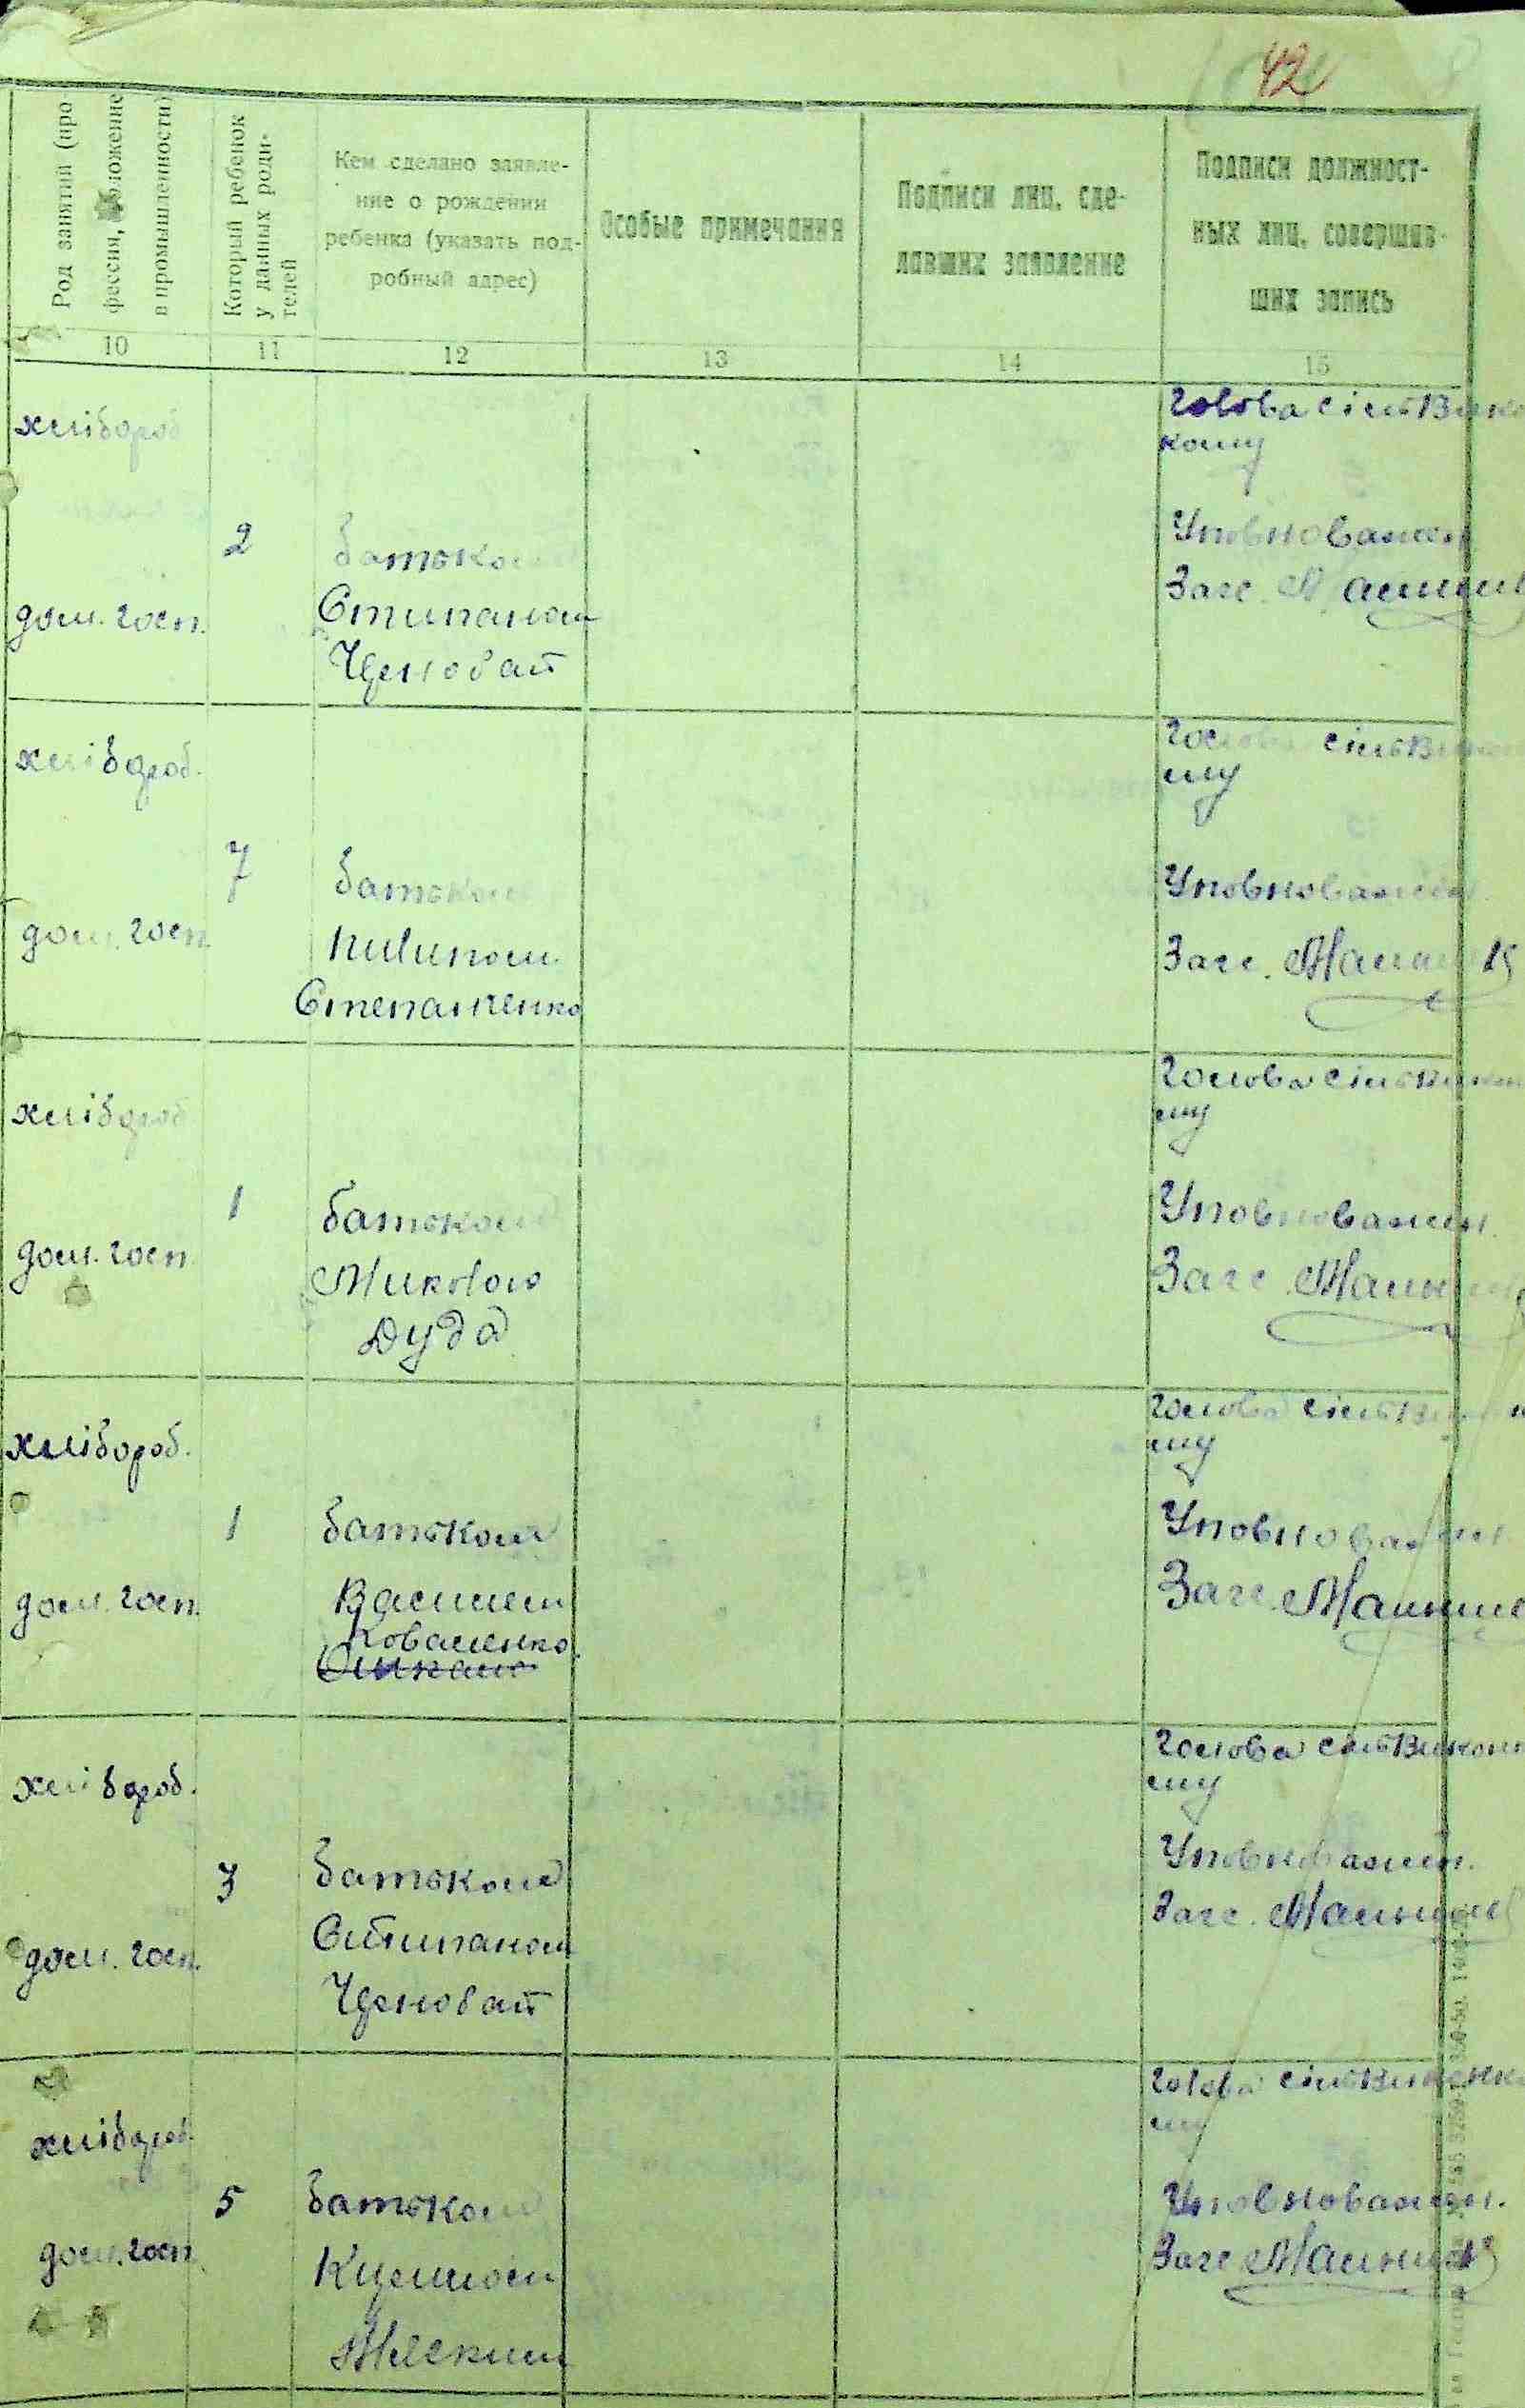 42
Род занятий (про
фессия, положение
в промышленности)
Который ребенок
у данных роди-
телей
Кем сделано заявле-
ние о рождении
ребенка (указать под-
робный адрес)
Особые примечания
Подписи лиц, сде-
лавших заявление
Подписи должност-
ных лиц, совершив-
ших запись
10
11
12
13
14
15
хлібороб
2
дом. госп.
батьком
Стипаном
Голова сільВико
кому
Уповноважен
Загс.
хлібороб.
7
дом. госп.
батьком
Пилипом
Степанченко
Голова сільВикон
му
Уповноважен.
Загс.
хлібороб
1
дом. госп
батьком
Миколою
Дуда
Голова сільВикон
му
Уповноважен.
Загс.
хлібороб.
1
дом. госп.
батьком
Василем
Коваленко
Голова сільВикон
му
Уповноважен.
Загс.
хлібороб.
3
дом. госп.
батьком
Стипаном
Голова сільВиконк
му
Уповноважен.
Загс.
хлібороб.
5
дом. госп
батьком
Голова сільВиконк
му
Уповноважен.
Загс